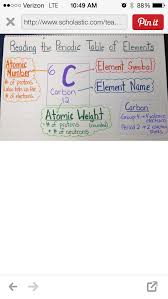 ●●○○○ Verizon LTE 10:49 AM 88%
http://www.scholastic.com/tea... ✕ Pin it
Reading the Periodic Table of Elements
Atomic
Number
# of protons
# of electrons
6
C
Carbon
12
Element Symbol
Element Name
Atomic Weight
# of protons (rounded)
+ # of neutrons
Carbon
Group 4 → 4
electrons
Period 2 → 2
shells